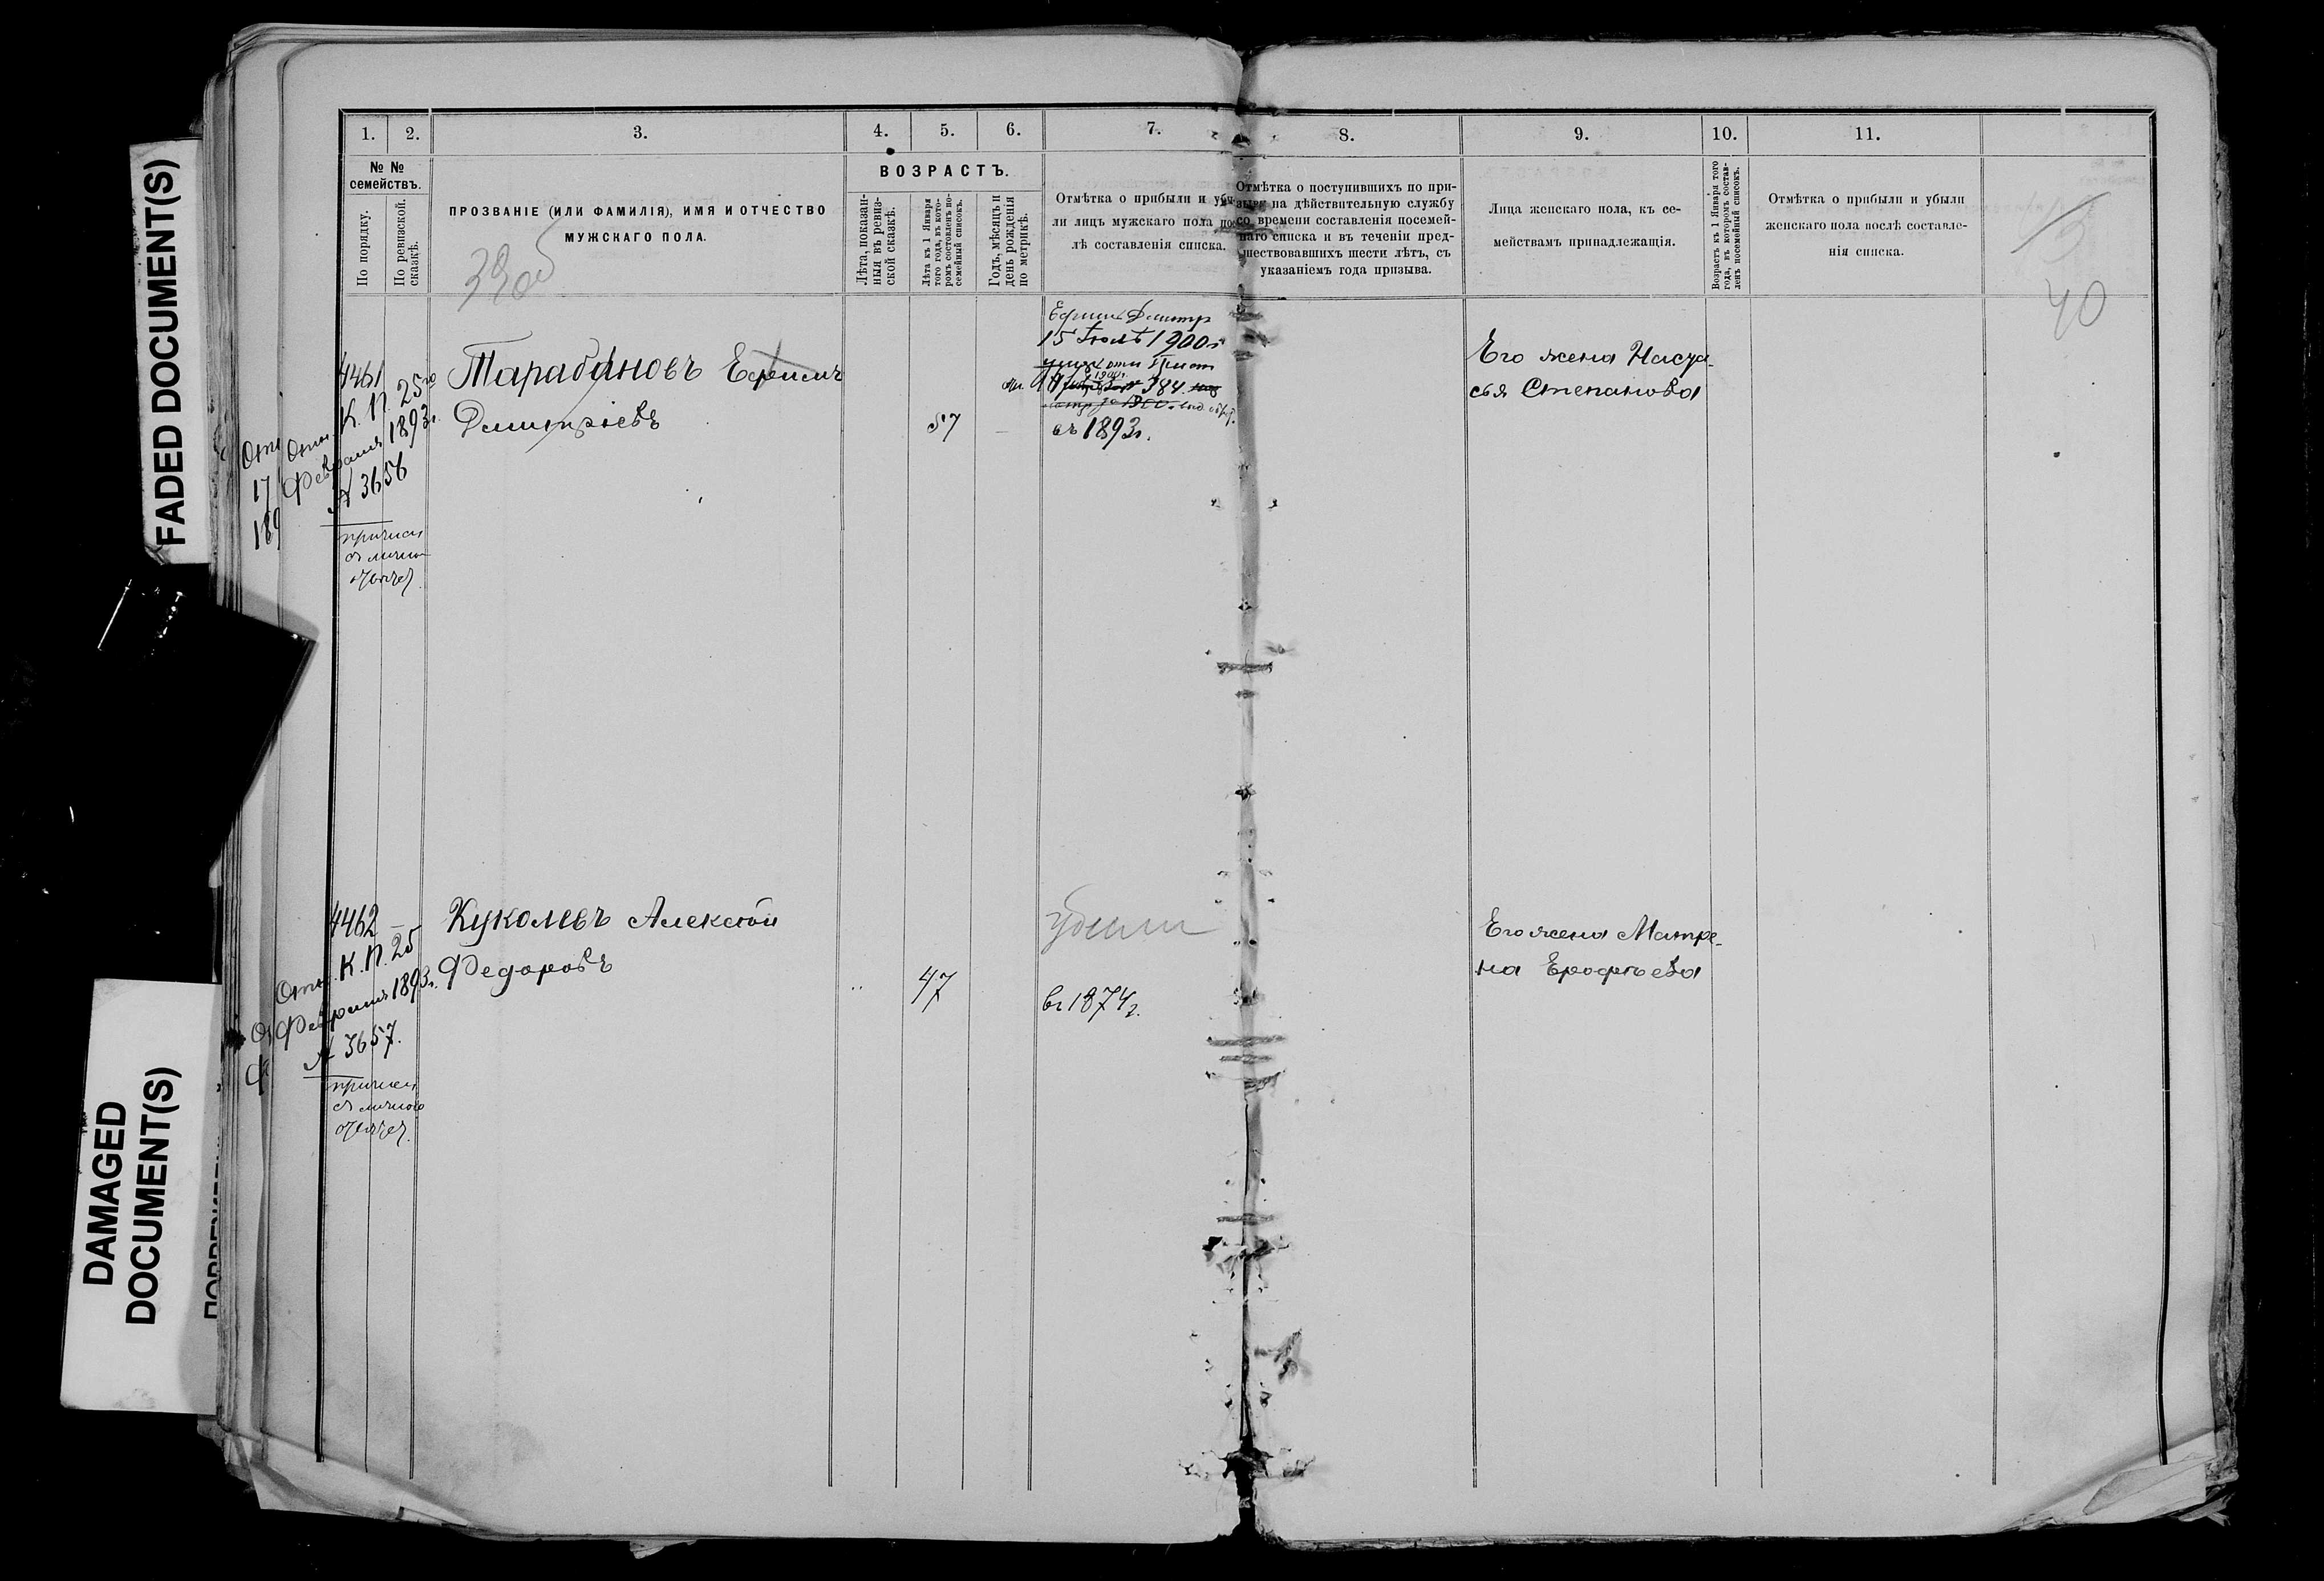 FADED DOCUMENT(S)
DAMAGED
DOCUMENT(S)
1.
2.
3.
4.
5.
6.
7.
8.
9.
10.
11.
№ №
семействъ.
По порядку.
По ревизской.
сказкѣ.
ПРОЗВАНІЕ (ИЛИ ФАМИЛІЯ), ИМЯ И ОТЧЕСТВО
МУЖСКАГО ПОЛА.
39 об
ВОЗРАСТЪ.
Лѣта, показан-
ныя въ ревиз-
ской сказкѣ.
Лѣта къ 1 Января
того года, въ кото-
ромъ составленъ по-
семейный списокъ.
Годъ, мѣсяцъ и
день рожденія
по метрикѣ.
Отмѣтка о прибыли и убы-
ли лицъ мужскаго пола пос-
лѣ составленія списка.
Отмѣтка о поступившихъ по при-
зыву на дѣйствительную службу
со времени составленія посемей-
наго списка и въ теченіи пред-
шествовавшихъ шести лѣтъ, съ
указаніемъ года призыва.
Лица женскаго пола, къ се-
мействамъ принадлежащія.
Возрастъ къ 1 Января того
года, въ которомъ состав-
ленъ посемейный списокъ.
Отмѣтка о прибыли и убыли
женскаго пола послѣ составле-
нія списка.
40
4461
Отн. К. П. 25го
Февраля 1893 г.
№ 3656
причисл
съ личн
Тарабановъ Ефимъ
Дмитріевъ
57
Ефимъ Дмитр
15 Іюлѣ 1900 г
1900 г.
№ 384
съ 1893 г.
Его жена Наста-
сья Степанова
Отн
17
189
4462
Отн. К. П. 25
Февраля 1893 г.
№ 3657.
причисл
съ личного
Куколевъ Алексѣй
Федоровъ
47
въ 1874 г.
Его жена Матре-
на Ерофѣева